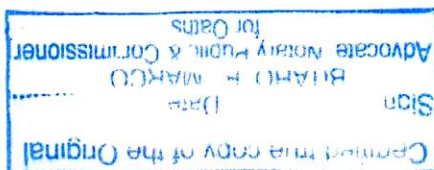 Certified true copy of the Original
Sign Date ..........
MARCO
Advocate Notary Public & Commissioner
for Oaths